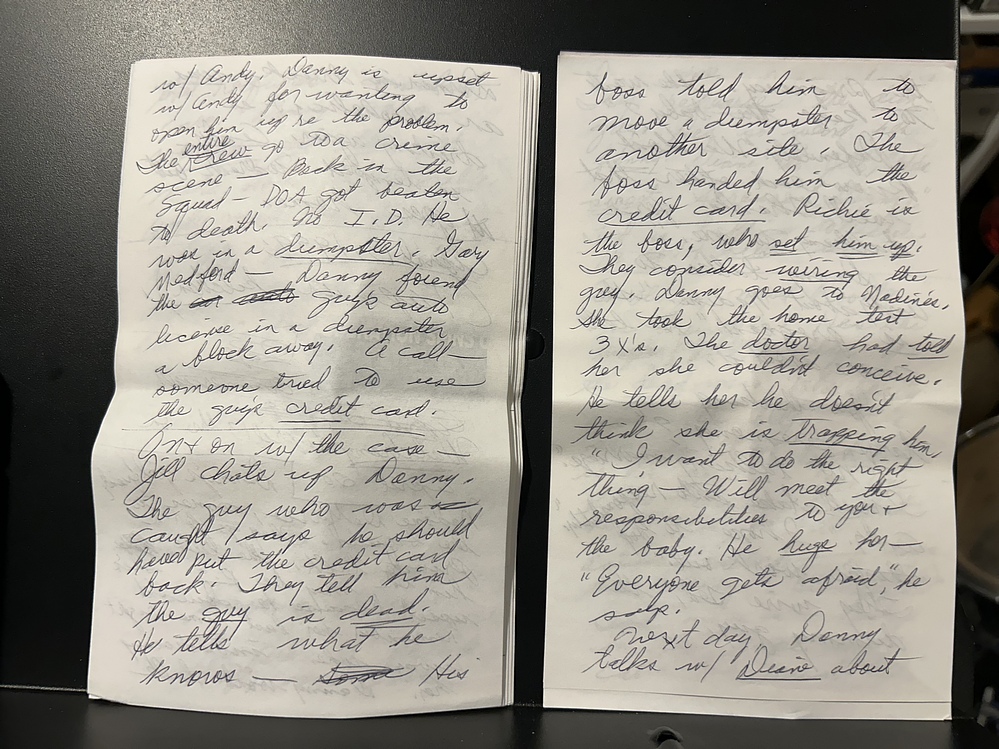 w/ Andy. Danny is upset
w/ Andy for wanting to
open him up re the problem.
The entire crew go to a crime
scene — Back in the
Squad — DOA got beaten
to death. No I.D. He
was in a dumpster. Gary
Medford — Danny found
the guy's auto
license in a dumpster
a block away. A call —
someone tried to use
the guy's credit card.
On + on w/ the case —
Jill chats up Danny.
The guy who was
caught says he should
have put the credit card
back. They tell him
the guy is dead.
He tells what he
knows — His
boss told him to
move a dumpster to
another site. The
boss handed him the
credit card. Richie is
the boss, who set him up.
They consider wiring the
guy. Danny goes to Nadine's,
she took the home test
3 x's. The doctor had told
her she couldn't conceive.
He tells her he doesn't
think she is trapping him,
"I want to do the right
thing — Will meet the
responsibilities to you +
the baby. He hugs her —
"Everyone gets afraid", he
says.
Next day Danny
talks w/ Diane about